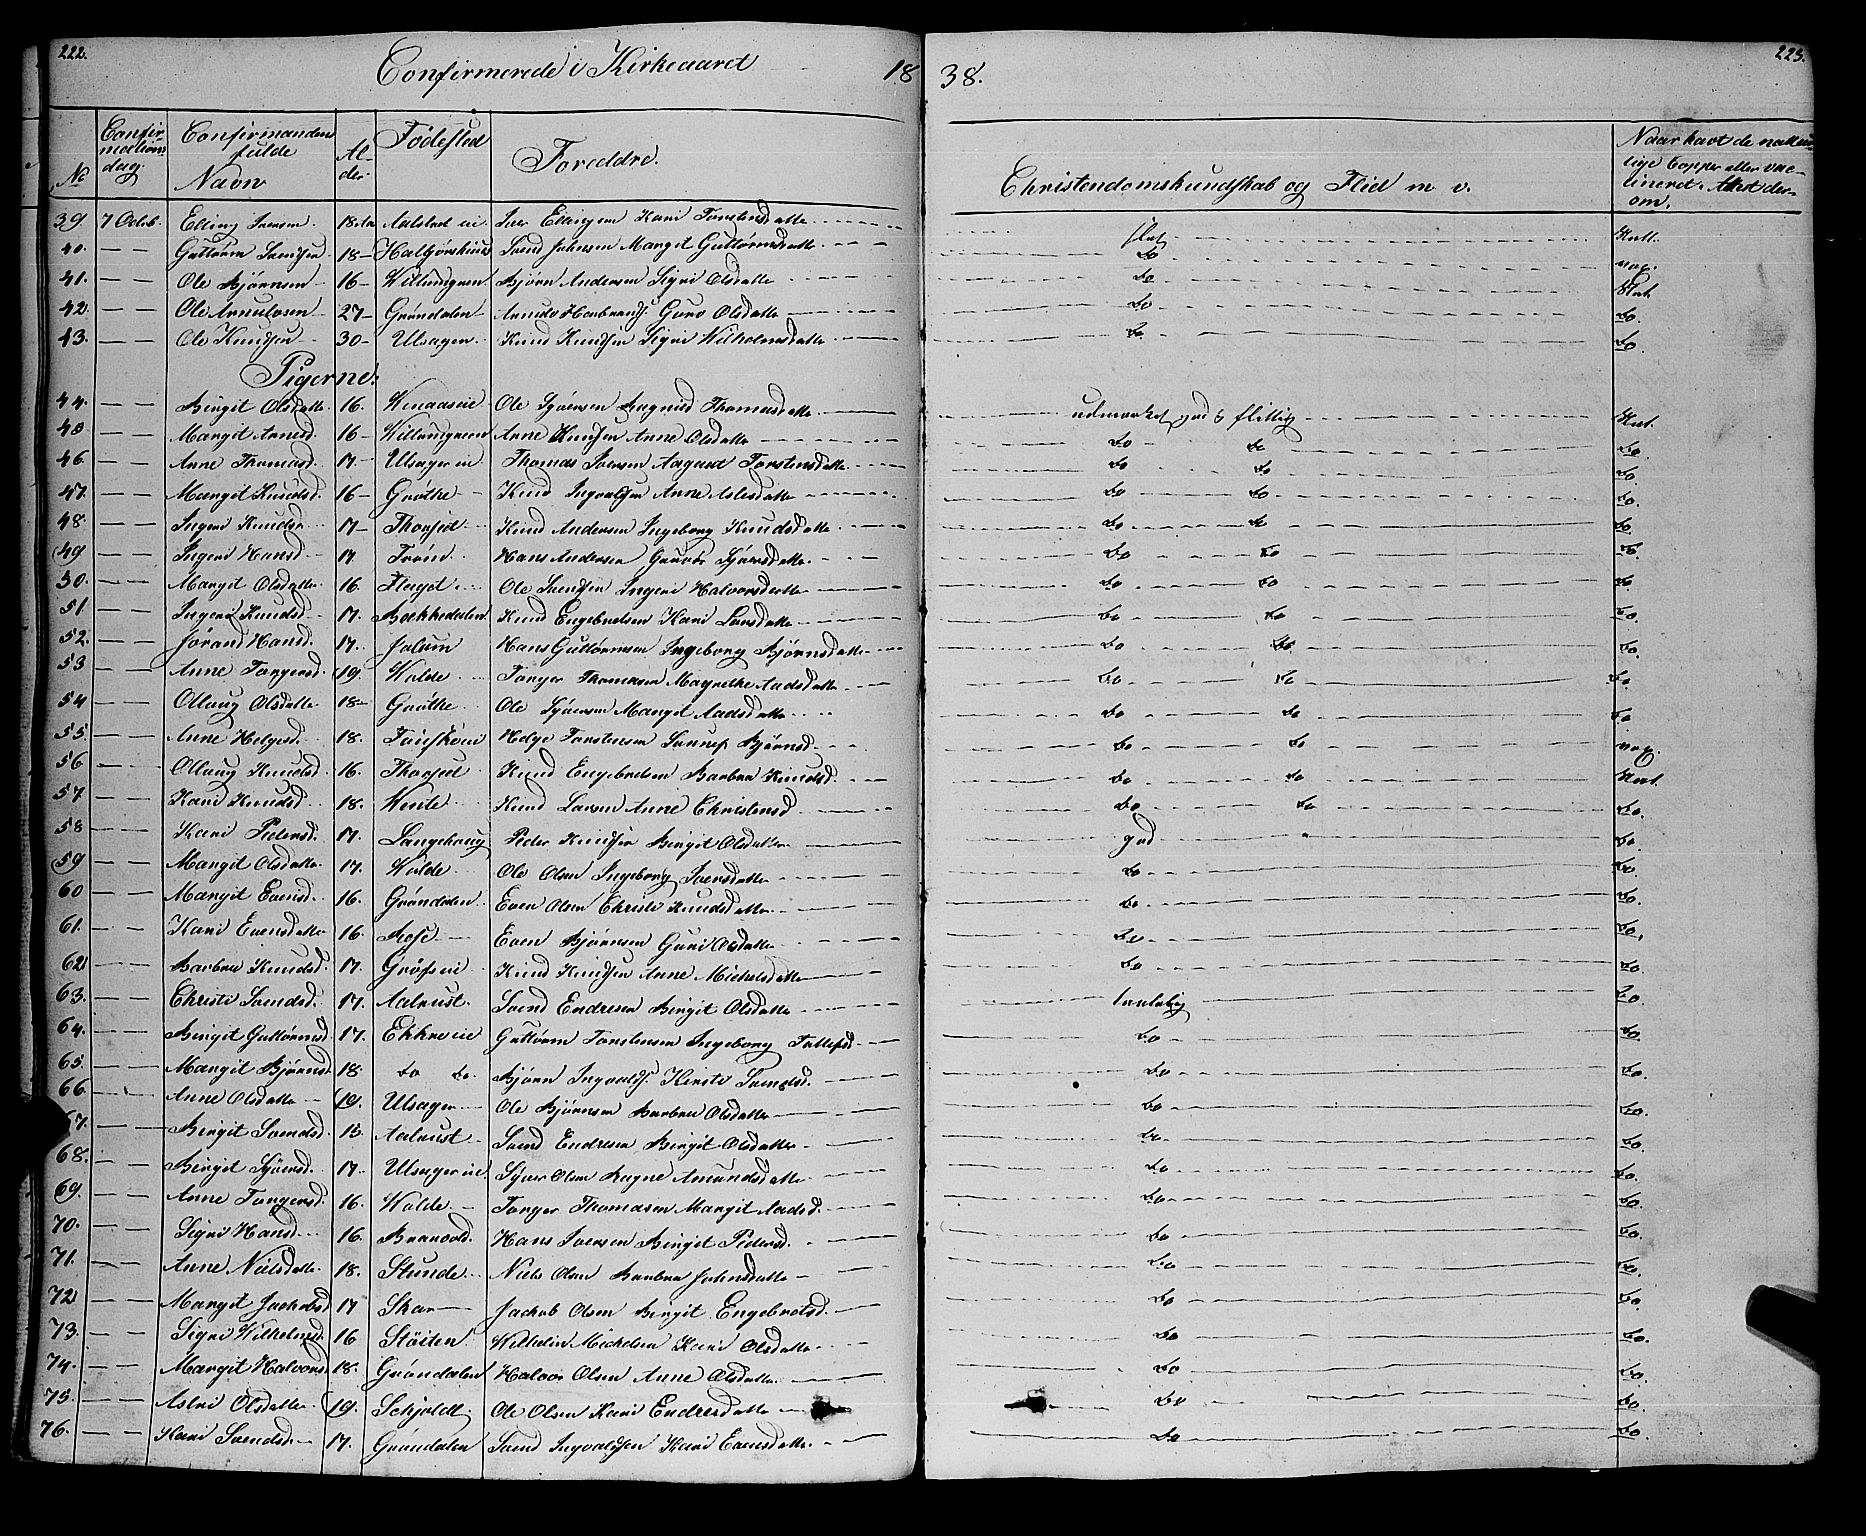 222.
Confirmerede i Kirkeaaret 18 38.
223.
No
Confirmations dag.
Confirmandens fulde Navn
Alder
Fødested
Foreldre.
Christendomskundskab og Flid m v.
Naar havt de naturlige Copper eller vaccineret. Attest derom.
39 7 Octob. Elling Iversen 18 Aalstad ie Iver Ellingsen Kari Torstensdatter
40. — — Guttorm Svendsen 18 — Svend Johnsen Margit Guttormsdatter do
41. — — Ole Bjørnsen 16 — Bjørn Andersen Sigri Olsdatter do
42. — — Ole Arnulvsen 27 — Grøndalen Guro Olsdatter do do.
43. — — Ole Knudsen 30 — Ulsagen Knud Knudsen Sigri Wilhelmsdatter do do.
Pigerne.
44. — — Birgit Olsdatter 16. Ole Syversen Thomasdatter udmærket god & flittig
45 — — Margit Arnesd. 16 — Arne Knudsen Anne Olsdatter do do do.
46. — — Anne Thomasd. 17 — Ulsager eie Thomas Iversen Aagaat Torstensdatter do do do
47. — — Margit Knudsd. 16 — Grøthe Knud Ingvalsen Anne Aslesdatter do do do.
48. — — Ingeri Knudsd. 17 — Knud Andersen Ingeborg Knudsdatter do do do
49 — — Ingeri Hansd. 17 Trøim Hans Andersen Syversdatter do do do
50. — — Margit Olsdatter 16. Ole Svendsen Ingeri Halvorsdatter do do do
51 — — Ingerid Knudsd. 17. Bækkedalen Knud Engebretsen Kari Larsdatter do do do.
52. — — Jørand Hansd. 17. Hans Guttormsen Ingeborg Bjørnsdatter do do do.
53 — — Anne Torgersd. 19. Wolde Torger Thomasen Magrethe Aadsdatter do do do.
54 — — Ollaug Olsdatter 18 — Grøthe Ole Syversen Margit Aadsdatter do do do.
55. — — Anne Helgesd. 18. Helge Torstensen Bjørnsd. do do
56 — — Ollaug Knudsd. 16. Knud Engebretsen Barbra Knudsd. do do
57 — — Kari Knudsd. 18. Knud Larsen Anne Christensd do do do.
58 — — Kari Pedersd. 17. Langehaug Peder Knudsen Birgit Olsdatter god do.
59 — — Margit Olsdatter 17. Wolde Ole Olsen Ingeborg Iversdatter do do.
60 — — Margit Evensd. 16. Grøndalen Even Olsen Christi Knudsdatter do do.
61. — — Kari Evensdatter 16. Even Bjørnsen Guri Olsdatter do do.
62 — — Barbra Knudsd. 17. Knud Knudsen Anne Michelsdatter do do.
63. — — Christi Svendsd. 17. Aalrust. Svend Endresen Birgit Olsdatter do.
64. — — Birgit Guttormsd. 17. Ekkre eie Guttorm Torstensen Ingeborg Tollefsd. do do
65. — — Margit Bjørnsd. 18 do do. Bjørn Ingvalds. Kirsti Svendsd. do do.
66. — — Anne Olsdatter 19. Ulsager Ole Bjørnsen Barbra Olsdatter do do.
67. — — Birgit Svendsd. Aalrust Svend Endresen Birgit Olsdatter do do.
68. — — Birgit Syversd. 17. Ulsager eie Syver Olsen Ragne Amundsdatter do do.
69. — — Anne Torgersd. 16. Wolde Torger Thomasen Margit Aadsd. do do.
70. — — Sigri Hansd. 16. Hans Iversen Birgit Pedersd. do do.
71. — — Anne Nielsdatter 18. Stunde Niels Olsen Barbra Johnsdatter do do.
72 — — Margit Jachobsd 17 Skar Jachob Olsen Birgit Engebretsd. do do.
73. — — Sigri Wilhelmsd. 16 Støiten Wilhelm Michelsen Kari Olsdatter do do.
74. — — Margit Halvorsd. 18. Grøndalen Halvor Olsen Anne Olsdatter do do.
75. — — Astri Olsdatter 19. Schjoldt Ole Olsen Kari Endresdatter do do.
76. — — Kari Svendsd. 17. Grøndalen Svend Ingvaldsen Kari Evensdatter do do.